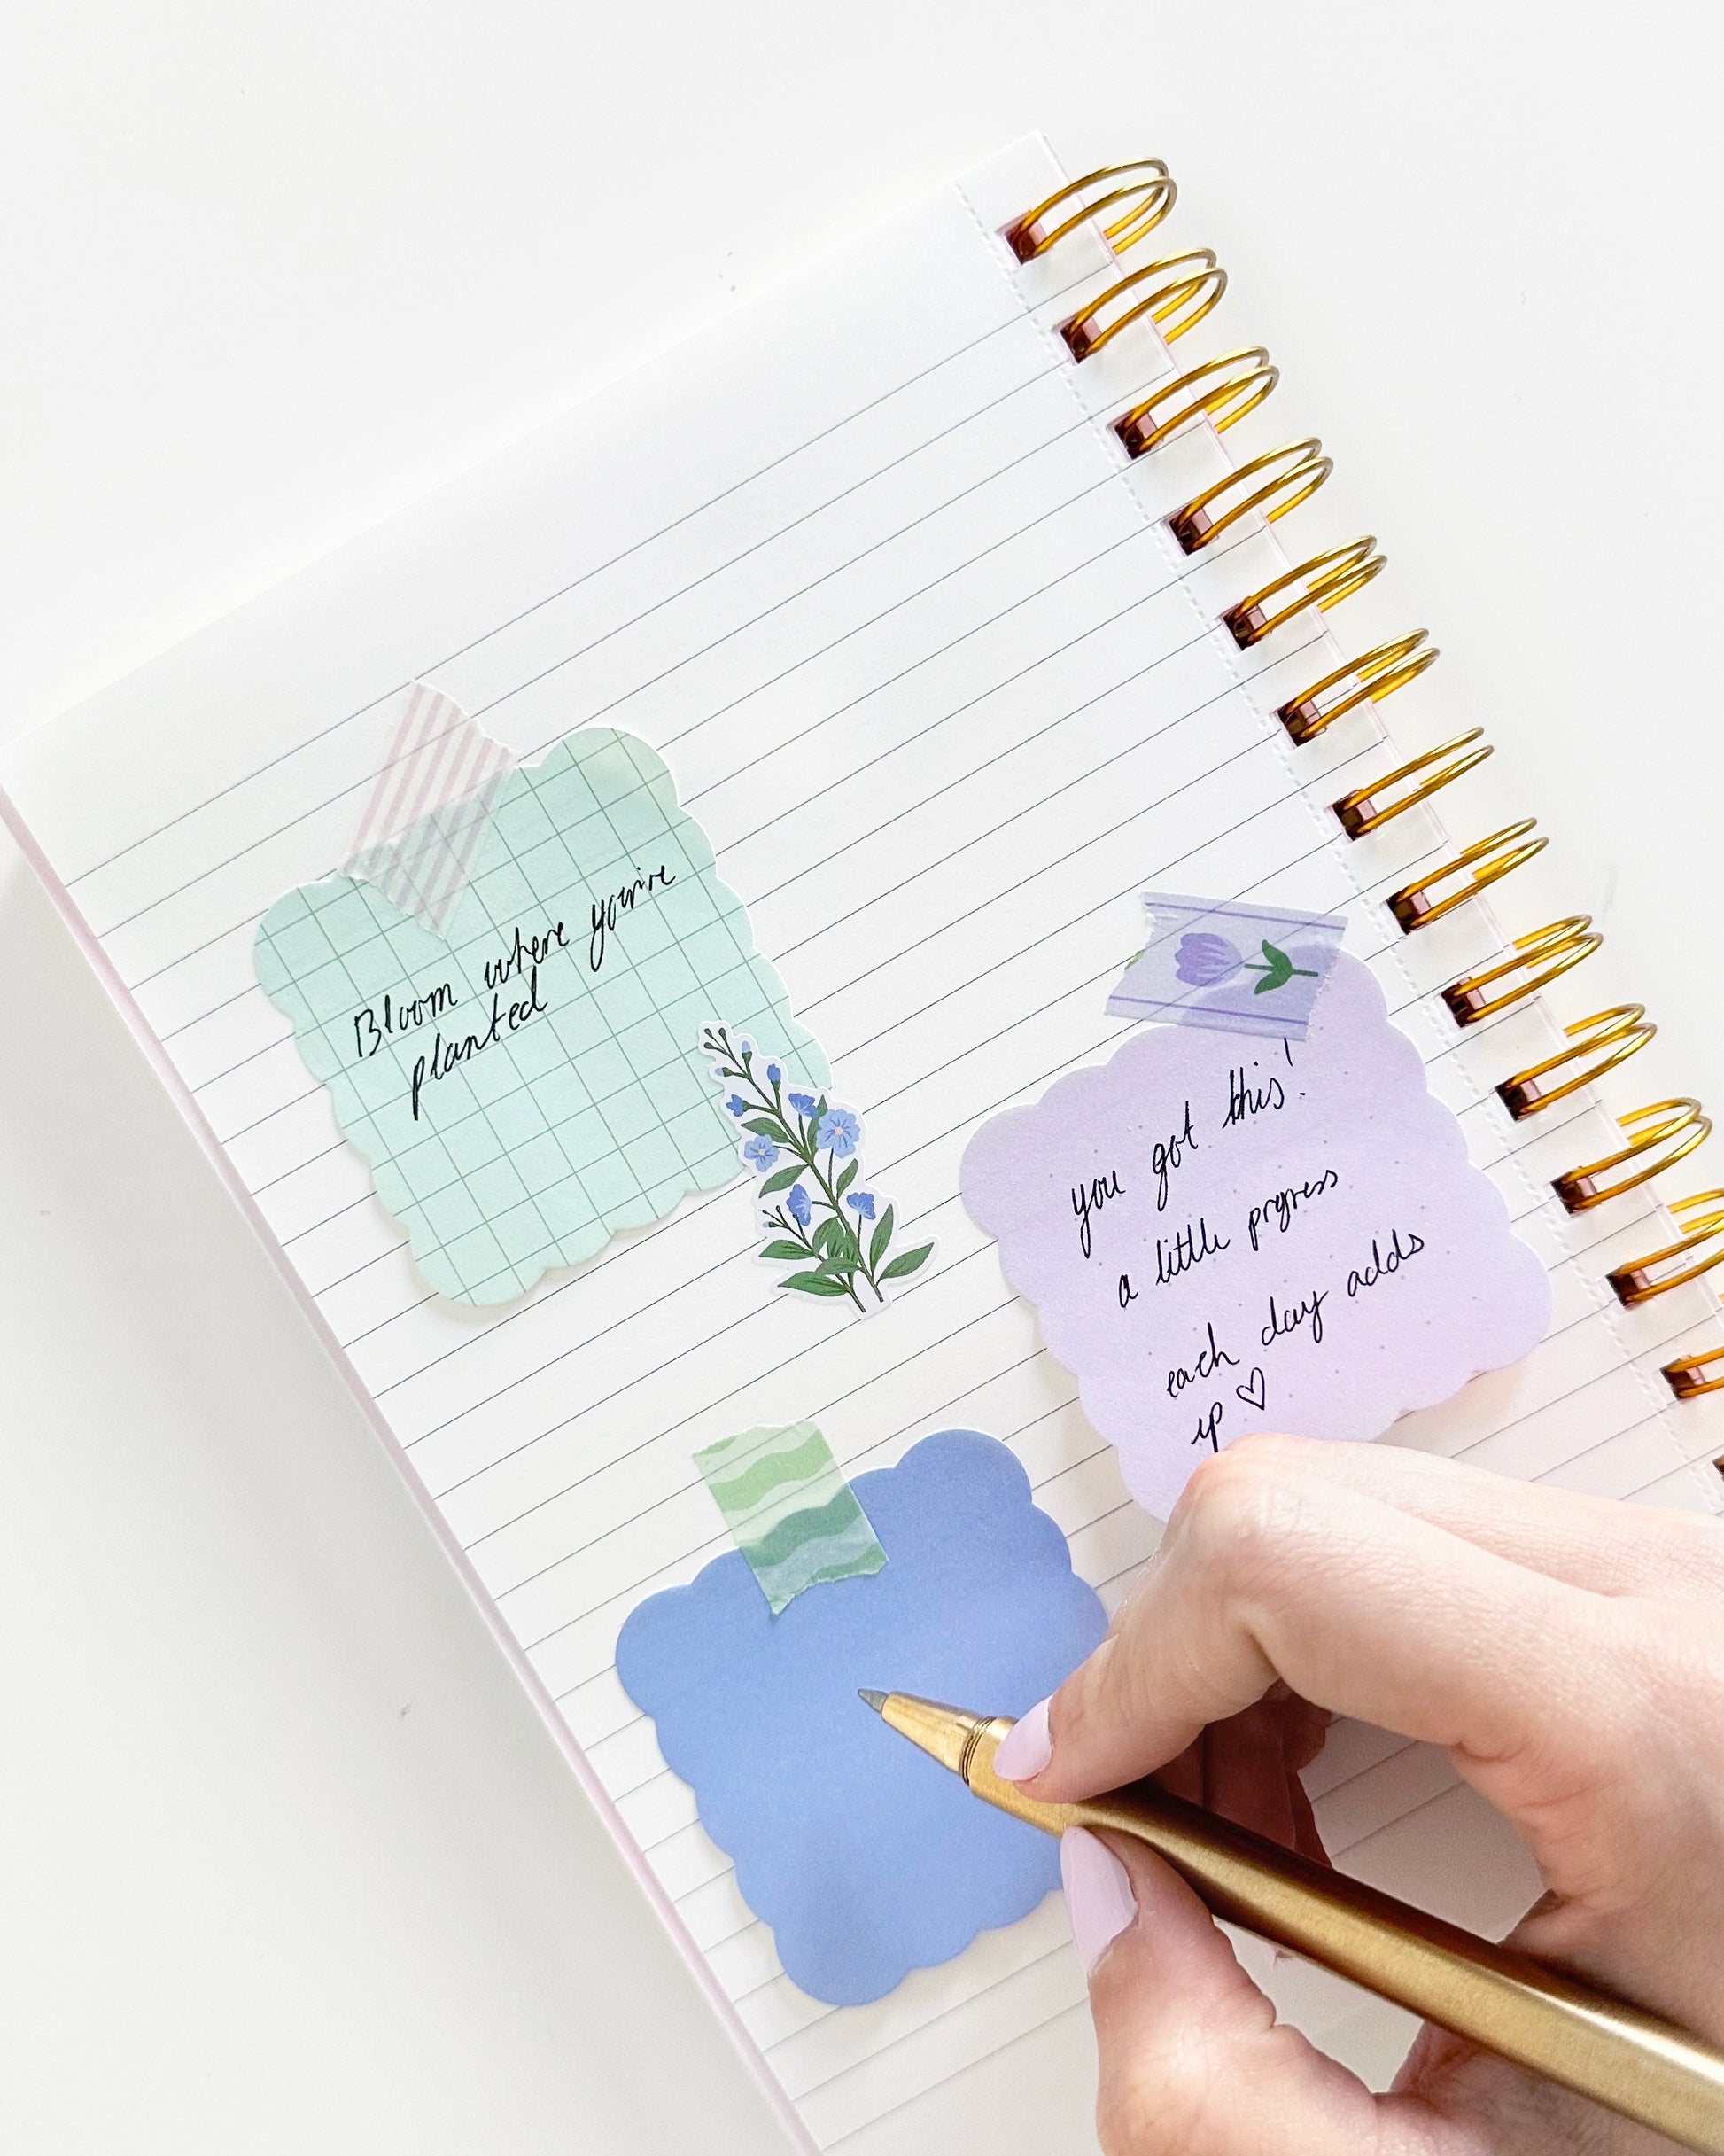 Bloom where you're
planted
you got this!
a little progress
each day adds
up ♡